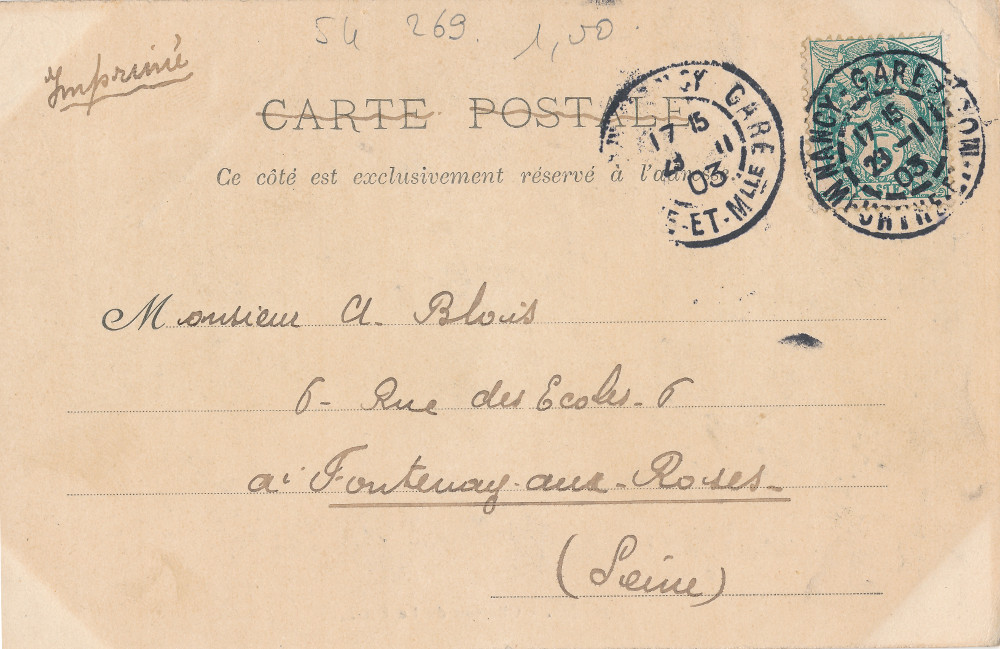 54 269. 1,50
Imprimé
CARTE POSTALE
Ce côté est exclusivement réservé à l'adresse
NANCY GARE
17 15
23 11
03
E-ET-MLLE
NANCY-GARE
17 15
23-11
03
MEURTHE
Monsieur A. Blois
6- Rue des Ecoles-6
à Fontenay-aux-Roses-
(Seine)